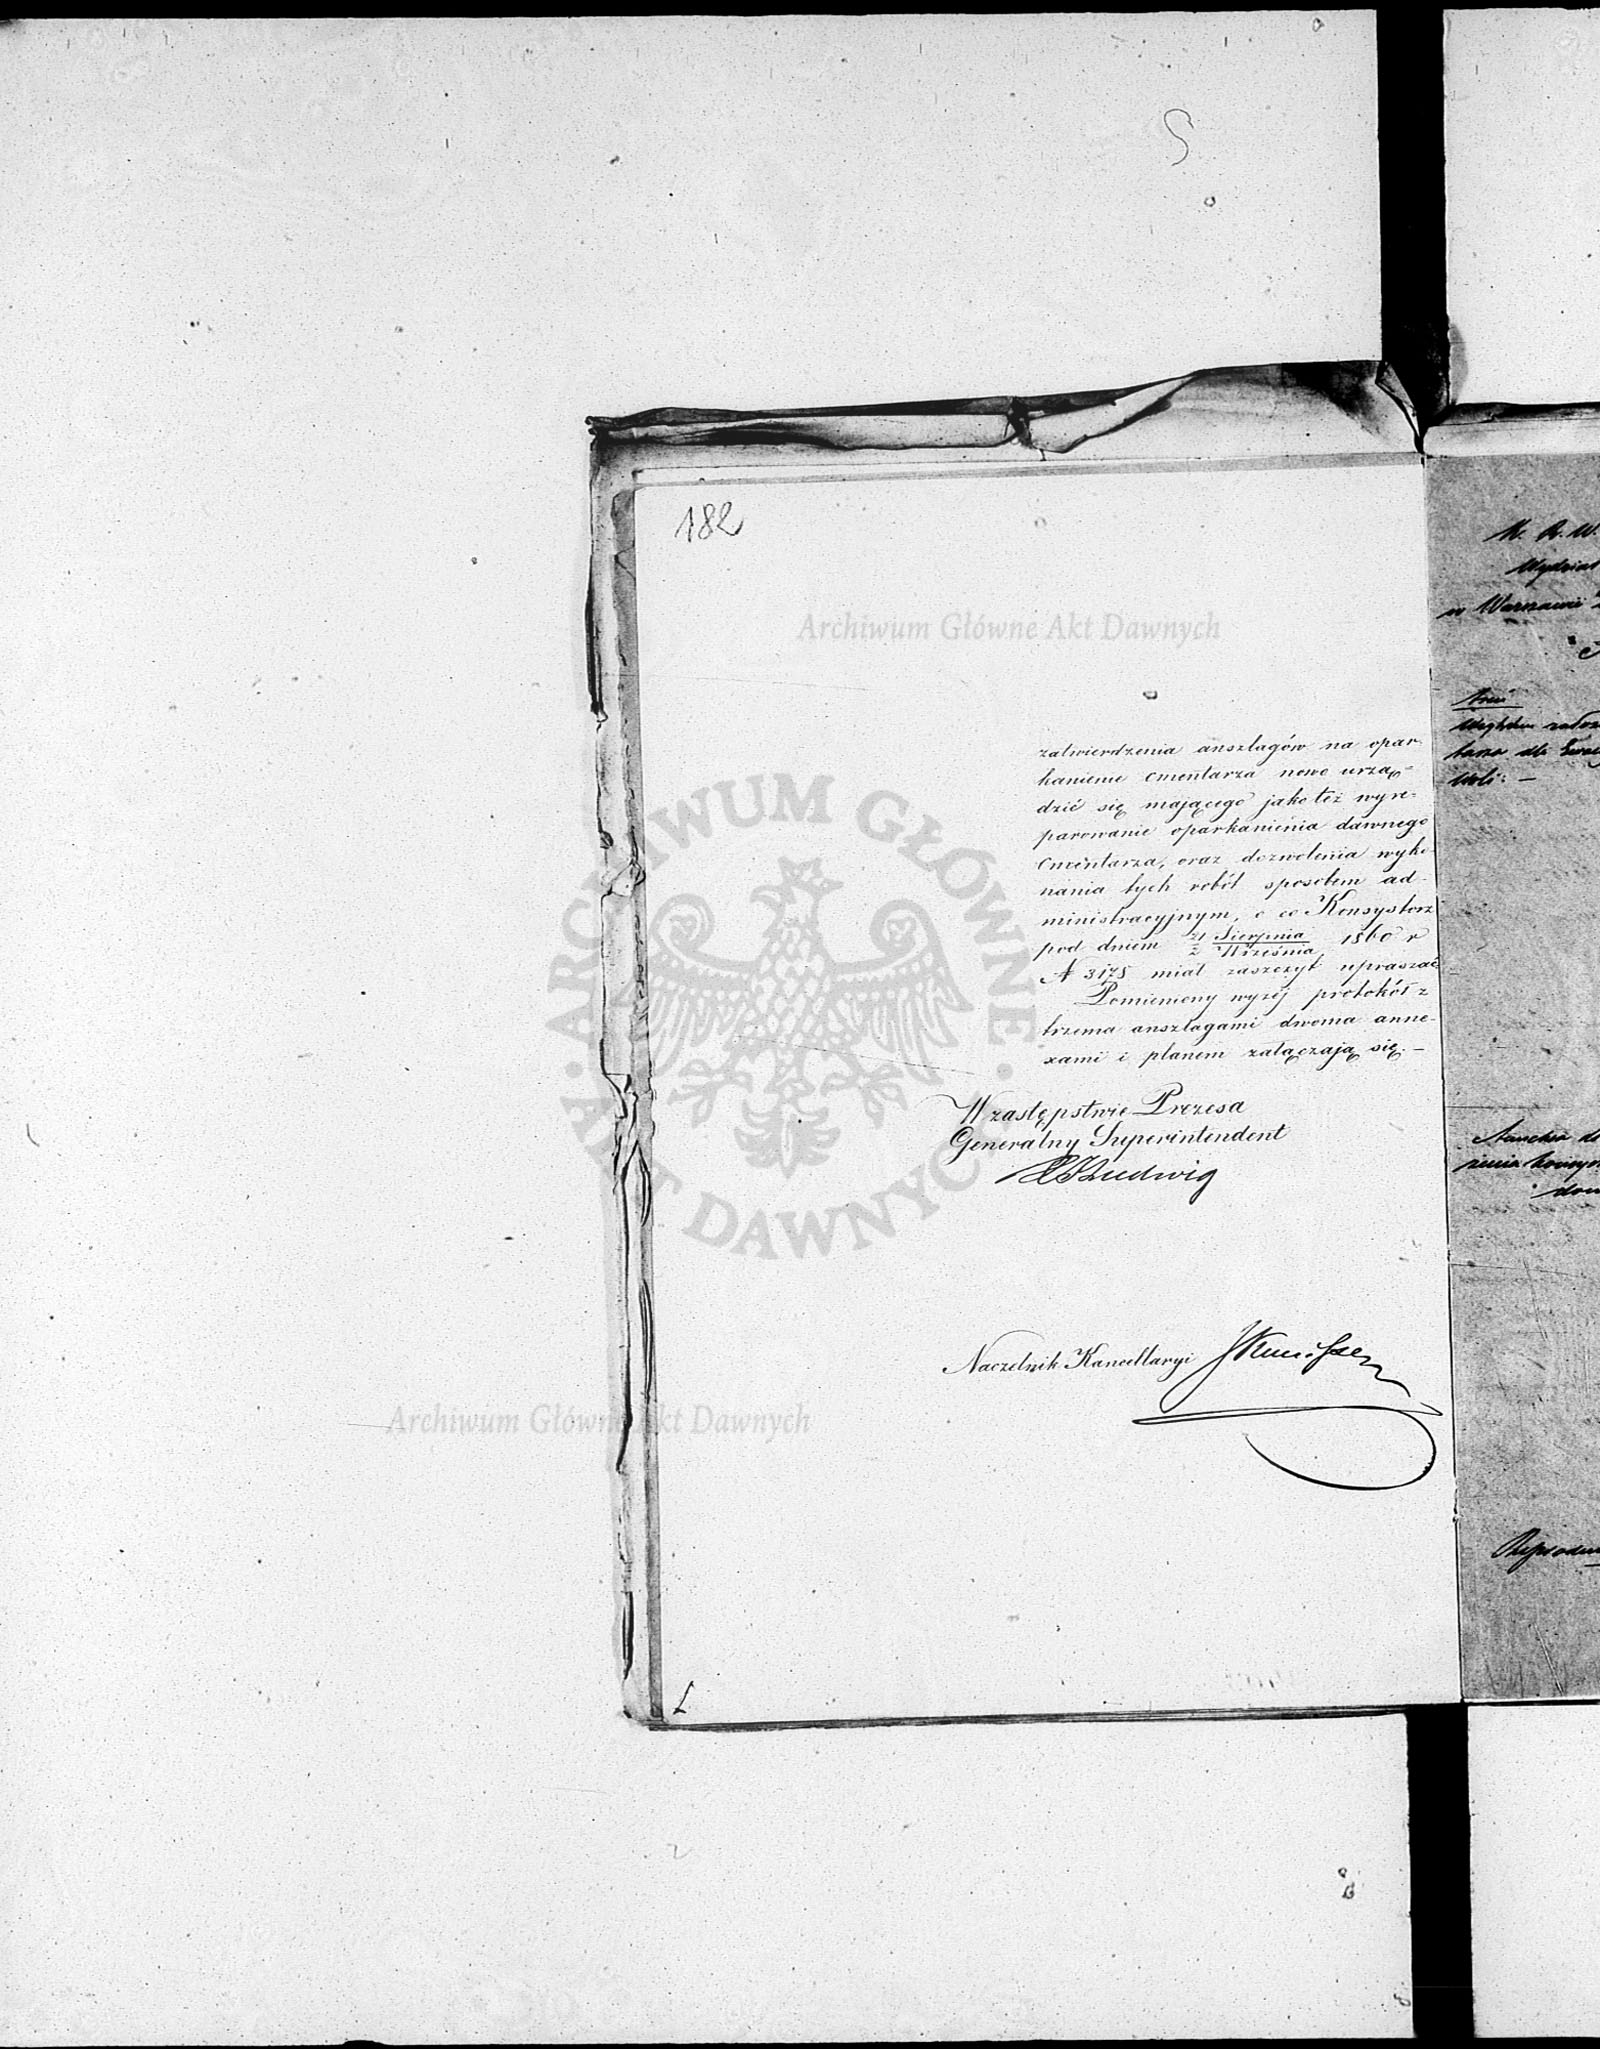 182
Archiwum Główne Akt Dawnych
zatwierdzenia anszlagów na opar-
kanienie cmentarza nowo urzą-
dzić się mającego jako też wyre-
parowanie oparkanienia dawnego
cmentarza, oraz dozwolenia wyko-
nania tych robót sposobem ad-
ministracyjnym, o co Konsystorz
pod dniem 21 Sierpnia / 2 Września 1860 r
N 3175 miał zaszczyt upraszać
Pomieniony wyżej protokół z
trzema anszlagami dwoma anne-
xami i planem załączają się. —
W zastępstwie Prezesa
Generalny Superintendent
Ludwig
Naczelnik Kancellaryi
Archiwum Główne Akt Dawnych
ARCHIWUM GŁÓWNE
AKT DAWNYCH
K. R. W.
Wydział
w Warszawie
Względem
Woli: —